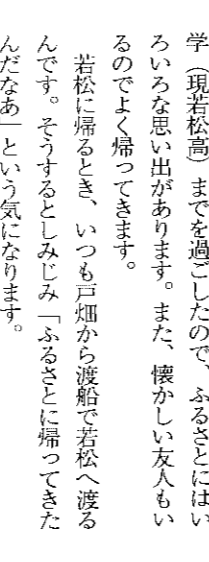 学（現若松高）までを過ごしたので、ふるさとにはい
ろいろな思い出があります。また、懐かしい友人もい
るのでよく帰ってきます。
　若松に帰るとき、いつも戸畑から渡船で若松へ渡る
んです。そうするとしみじみ「ふるさとに帰ってきた
んだなあ」という気になります。